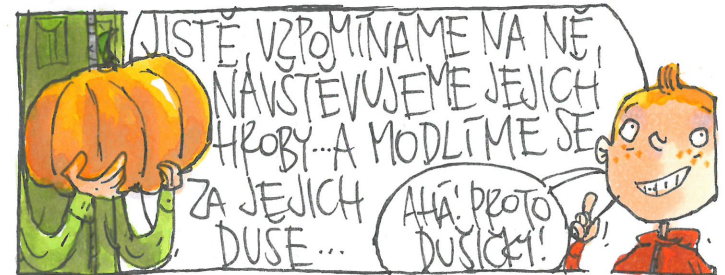 JISTĚ, VZPOMÍNÁME NA NĚ,
NAVŠTĚVUJEME JEJICH
HROBY...A MODLÍME SE
ZA JEJICH
DUŠE...
AHÁ! PROTO
DUŠIČKY!